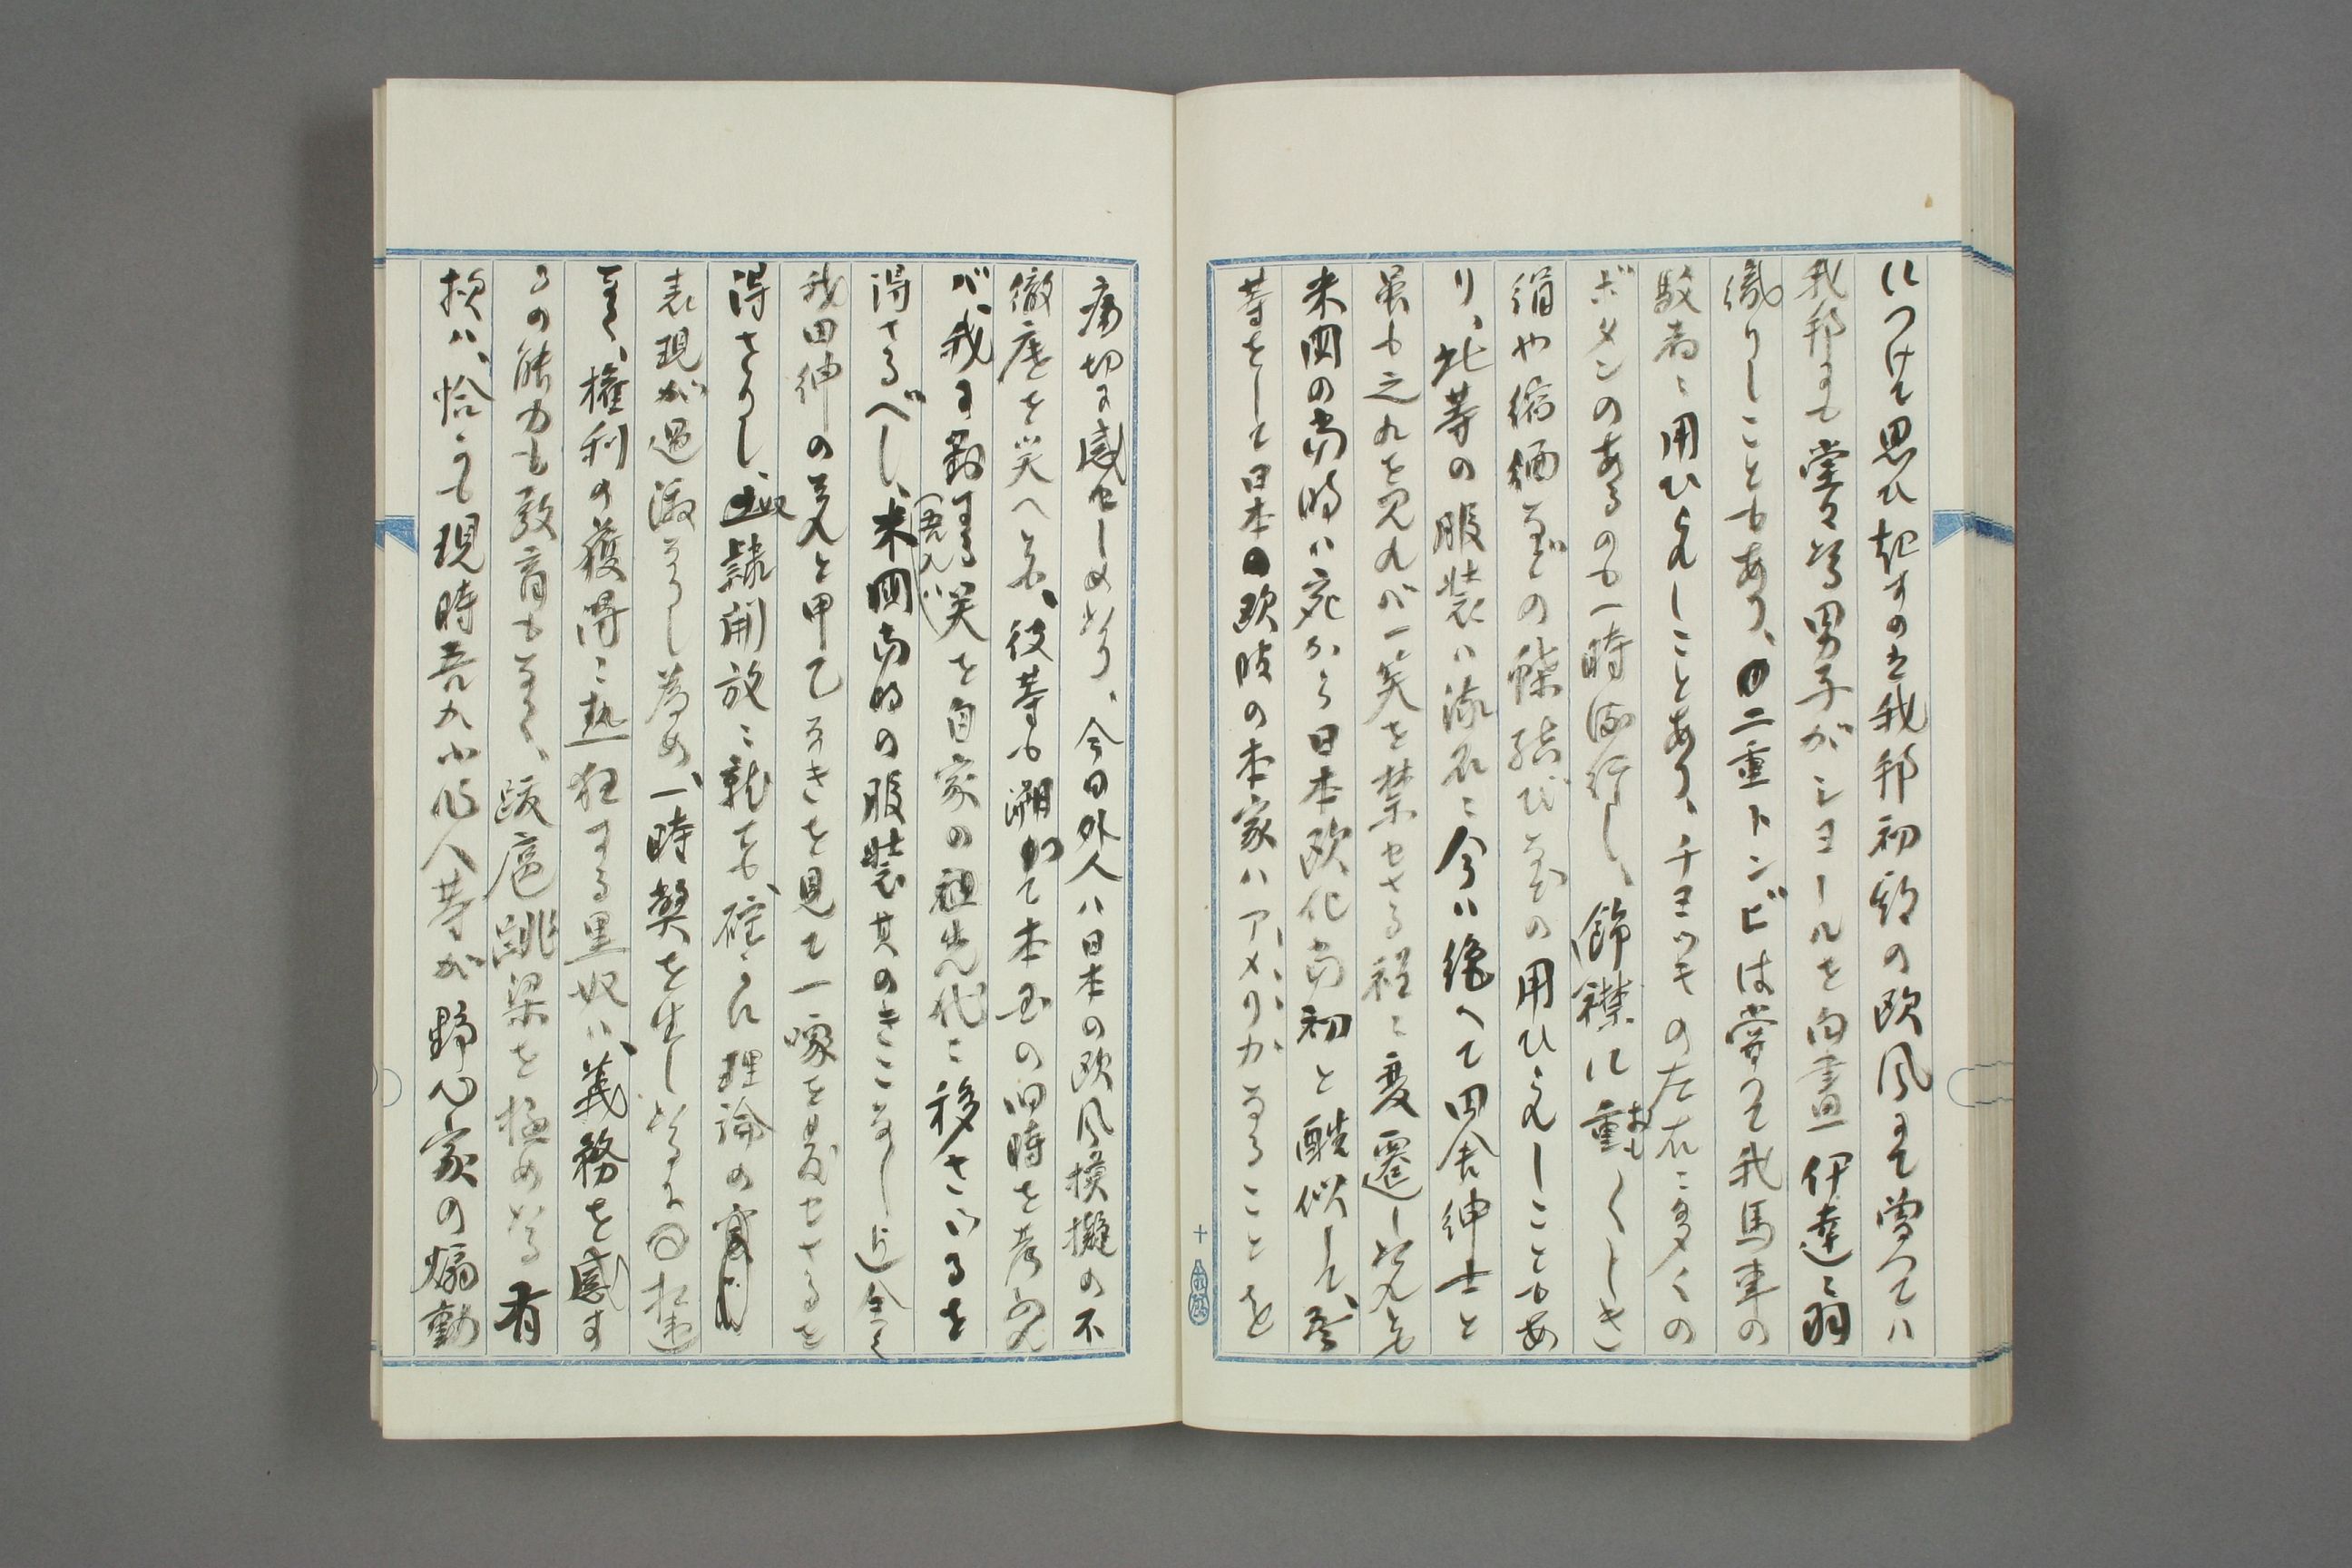 につけて思ひ起すのは我邦初期の欧風にて嘗つてハ
我邦にても堂々たる男子がショールを白晝伊達ニ羽
織りしこともあり、二重トンビは嘗つて我馬車の
馭者ニ用ひられしことあり、チョッキの左右ニ多くの
ボタンのあるのも一時流行し、飾襟に重おもくしき
絹や縮緬などの蝶結びなどの用ひられしこともあ
り、此等の服装ハ流石ニ今ハ絶へて田舎紳士と
虽も之れを見れバ一笑を禁セざる程ニ変遷したれども
米国の当時ハ宛がら日本欧化当初と酷似して、吾
等をして日本の欧改の本家ハアメリカなることを
十
痛切に感セしめたり、今日外人ハ日本の欧風模擬の不
徹底を笑へども、彼等も溯つて本国の旧時を考ふれ
バ、我に對する(吾人ガ)笑を自家の祖先代ニ移さゞるを
得ざるべし、米国当時の服装其のきこなし迄全く
我田紳の夫れと甲乙なきを見て一噱を発セざるを
得ざりし、奴隷開放ニ就ても、確かに理論の
表現が過激なりし為め、一時弊を生じたるに相違
なく、權利の獲得ニ熱狂する黒奴ハ、義務を感ず
るの能力も教育もなく、跋扈跳梁を極めたる有
様ハ、恰かも現時吾九小作人等が野心家の煽動